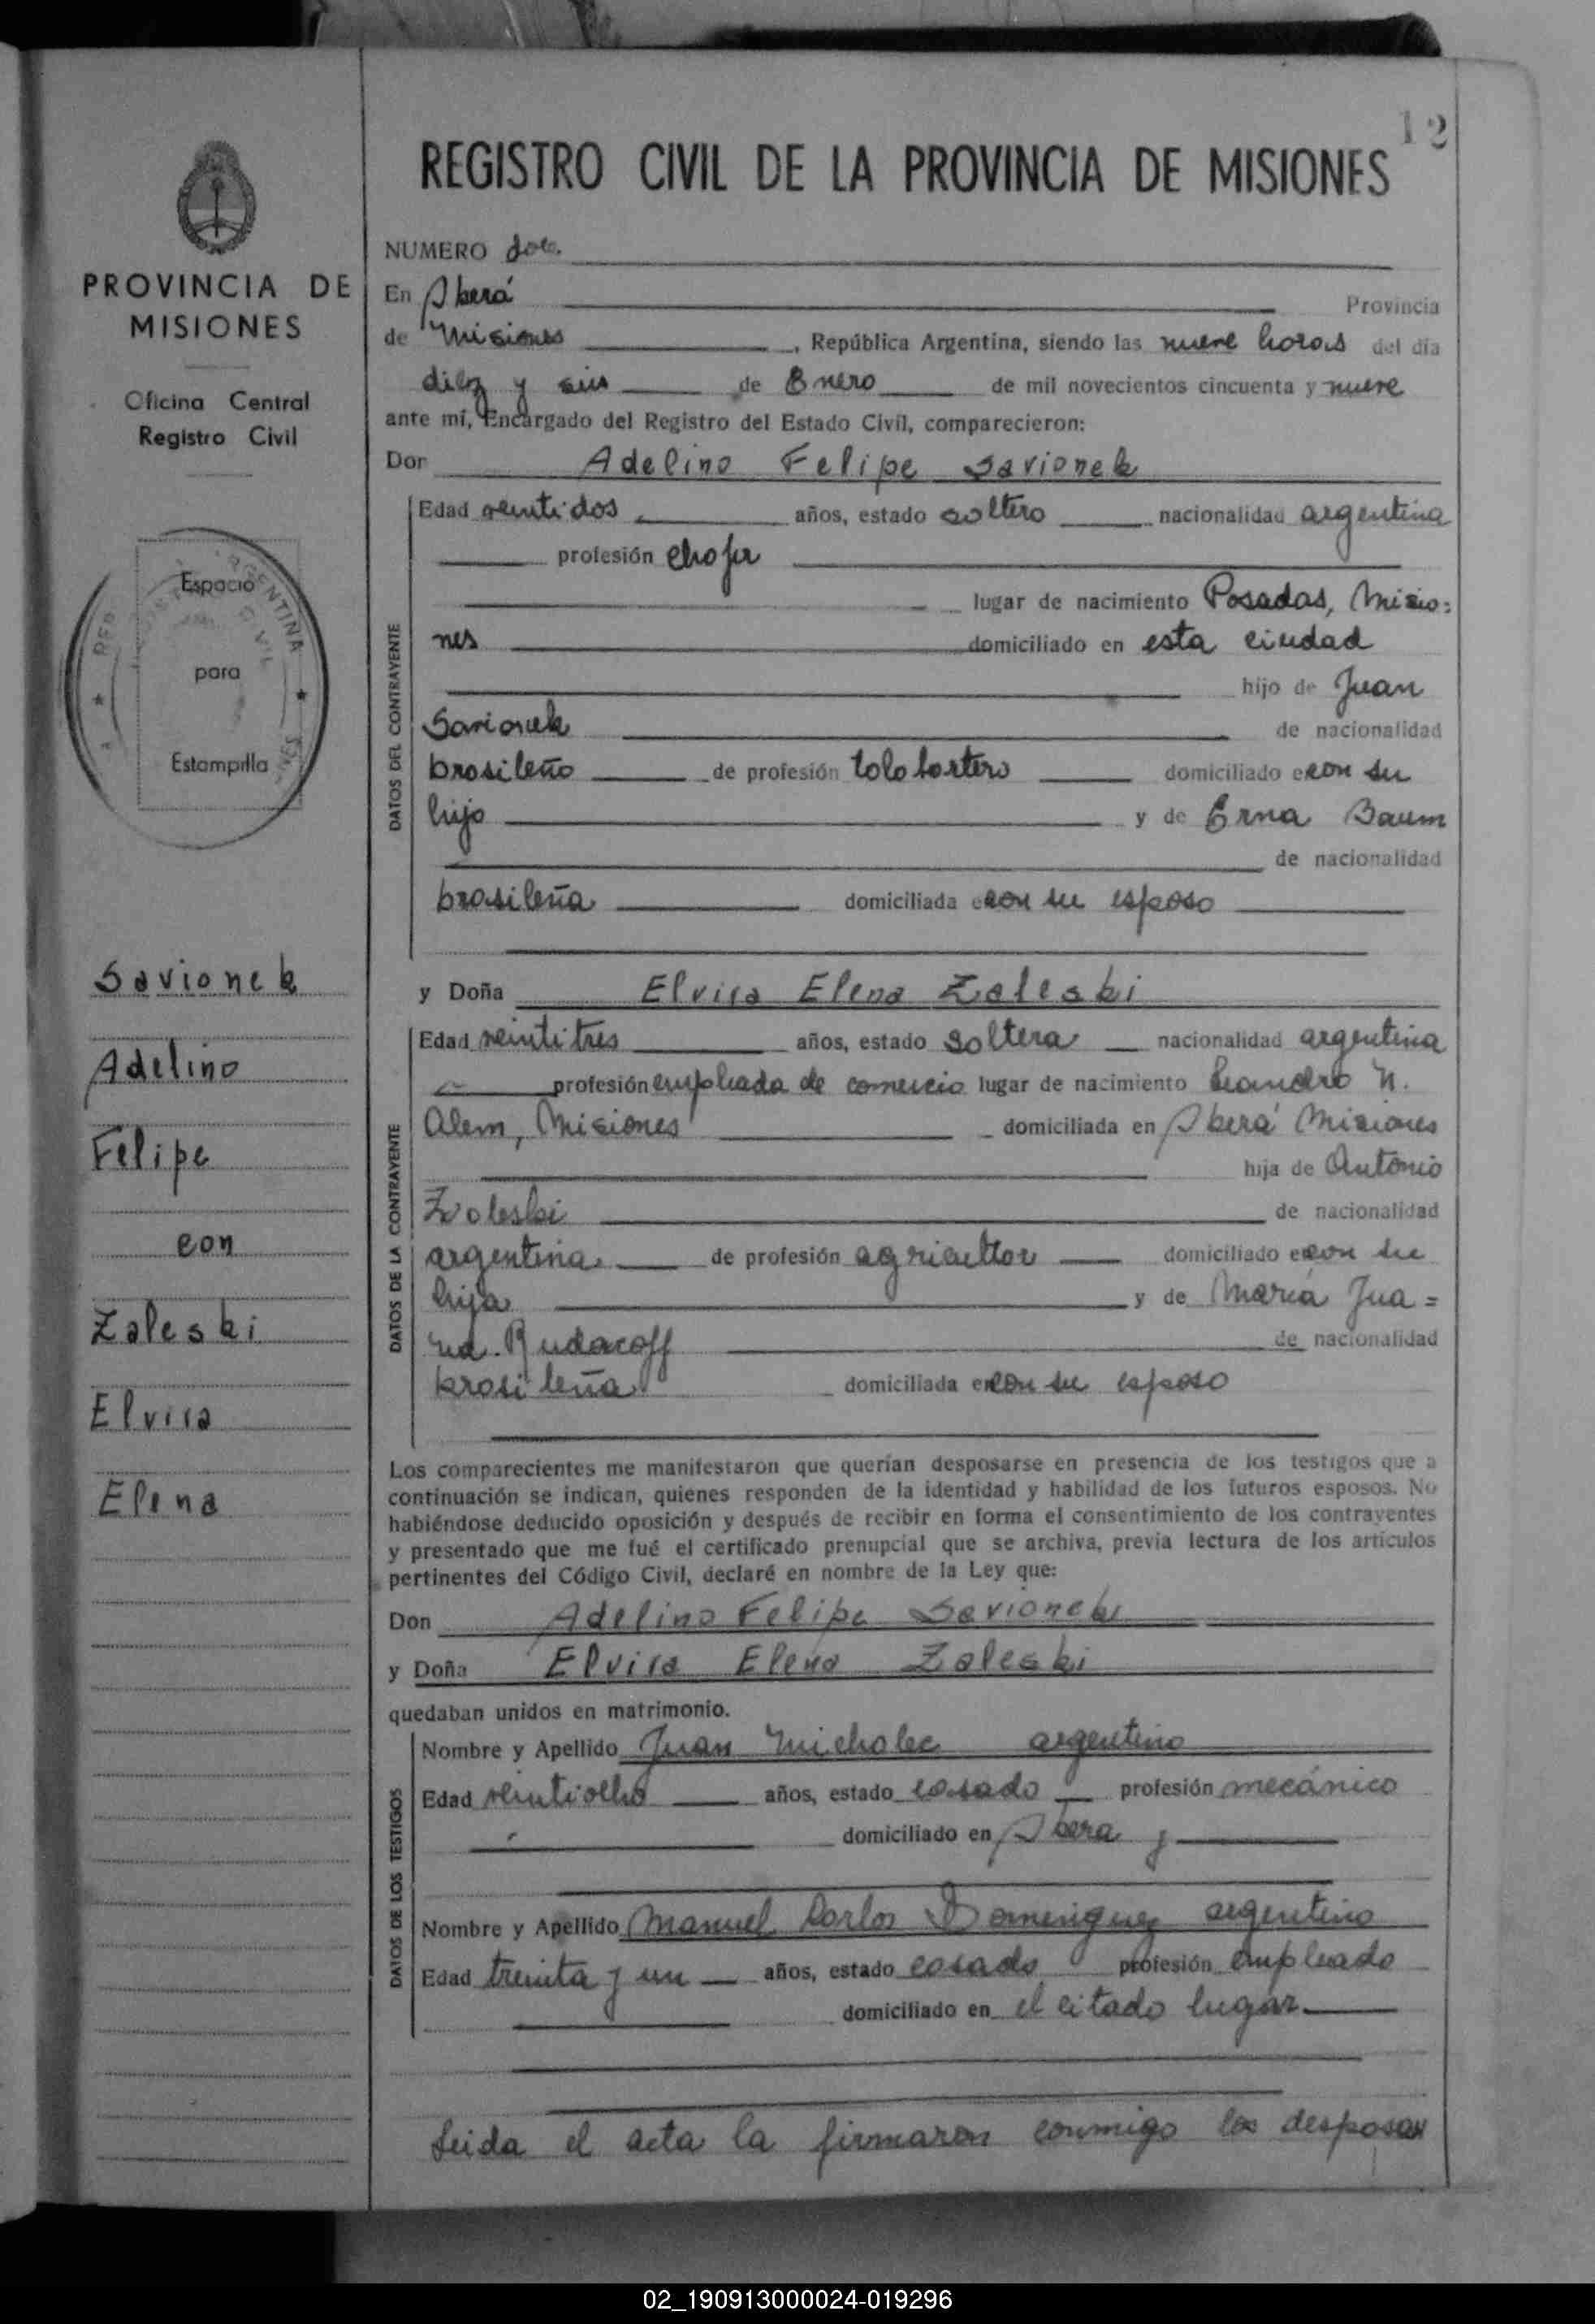 12
REGISTRO CIVIL DE LA PROVINCIA DE MISIONES
PROVINCIA DE
MISIONES
Oficina Central
Registro Civil
Espacio
para
Estampilla
Savionek
Adelino
Felipe
con
Zaleski
Elvira
Elena
NUMERO doce.
En Oberá Provincia
de Misiones, República Argentina, siendo las nueve horas del día
diez y seis de Enero de mil novecientos cincuenta y nueve
ante mí, Encargado del Registro del Estado Civil, comparecieron:
Don Adelino Felipe Savionek
DATOS DEL CONTRAYENTE
Edad veintidos años, estado soltero nacionalidad argentina
profesión chofer
lugar de nacimiento Posadas, Misio=
nes domiciliado en esta ciudad
hijo de Juan
Savionek de nacionalidad
brasileño de profesión domiciliado con su
hijo y de Erna Baum
de nacionalidad
brasileña domiciliada con su esposo
y Doña Elvira Elena Zaleski
DATOS DE LA CONTRAYENTE
Edad veintitres años, estado soltera nacionalidad argentina
profesión empleada de comercio lugar de nacimiento Leandro N.
Alem, Misiones domiciliada en Oberá Misiones
hija de Antonio
Zaleski de nacionalidad
argentina de profesión agricultor domiciliado con su
hija y de María Jua=
na Rudacoff de nacionalidad
brasileña domiciliada con su esposo
Los comparecientes me manifestaron que querían desposarse en presencia de los testigos que a
continuación se indican, quienes responden de la identidad y habilidad de los futuros esposos. No
habiéndose deducido oposición y después de recibir en forma el consentimiento de los contrayentes
y presentado que me fué el certificado prenupcial que se archiva, previa lectura de los artículos
pertinentes del Código Civil, declaré en nombre de la Ley que:
Don Adelino Felipe Savionek
y Doña Elvira Elena Zaleski
quedaban unidos en matrimonio.
DATOS DE LOS TESTIGOS
Nombre y Apellido Juan Michalec argentino
Edad veintiocho años, estado casado profesión mecánico
domiciliado en Oberá y
Nombre y Apellido Manuel Carlos Domeniguez argentino
Edad treinta y un años, estado casado profesión empleado
domiciliado en el citado lugar.
Leida el acta la firmaron conmigo los desposa
02_190913000024-019296